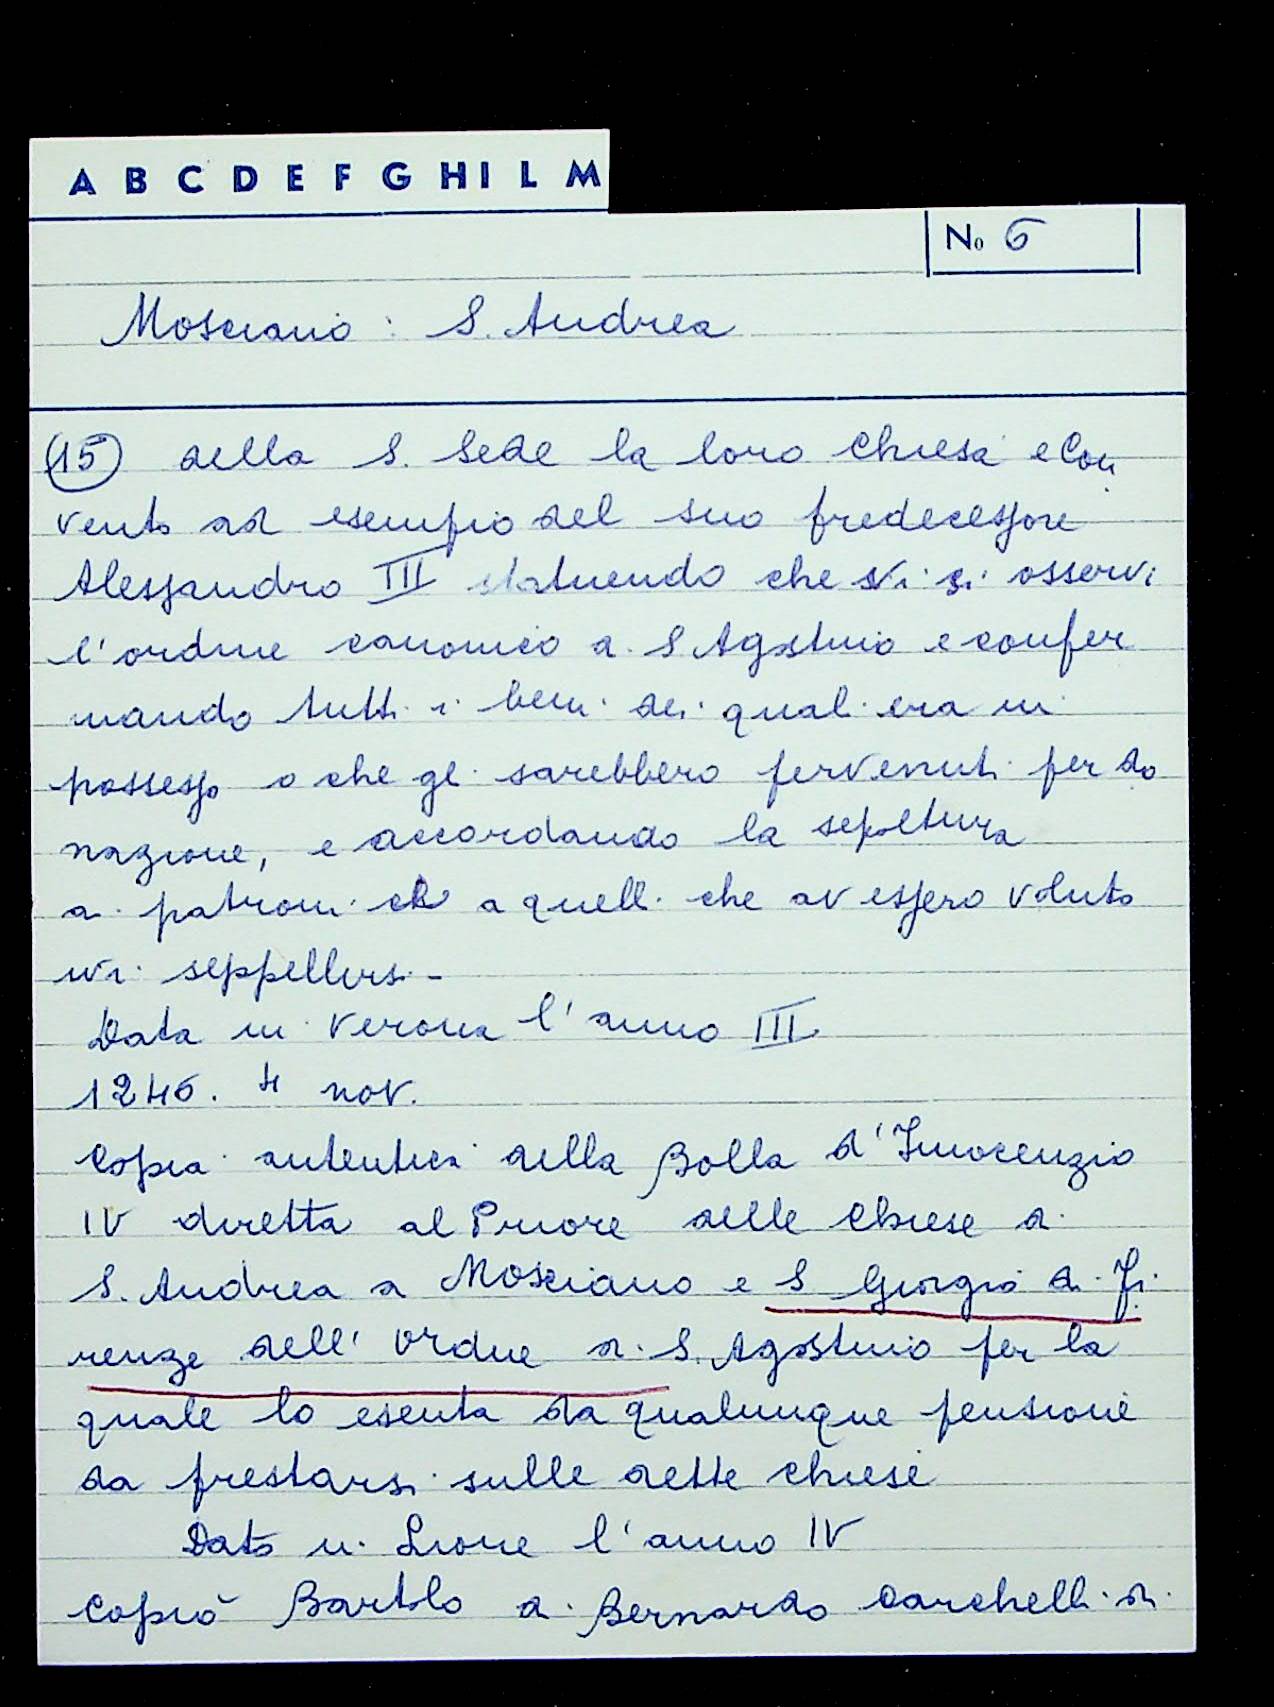 A B C D E F G H I L M
No 6
Mosciano : S. Andrea
(15) della S. Sede la loro Chiesa e Con
vento ad esempio del suo predecessore
Alessandro III statuendo che vi si osservi
l'ordine canonico di S Agostino e confer
mando tutti i beni dei quali era in
possesso o che gli sarebbero pervenuti per do
nazione, e accordando la sepoltura
ai patroni ed a quelli che avessero voluto
ivi seppellirsi -
Data in Verona l'anno III
1246. 4 nov.
Copia autentica della Bolla d'Innocenzio
IV diretta al Priore delle Chiese di
S. Andrea a Mosciano e S Giorgio di Fi
renze dell'ordine di S. Agostino per la
quale lo esenta da qualunque pensione
da prestarsi sulle dette chiese
Dato in Lione l'anno IV
Copiò Bartolo di Bernardo Carchelli di